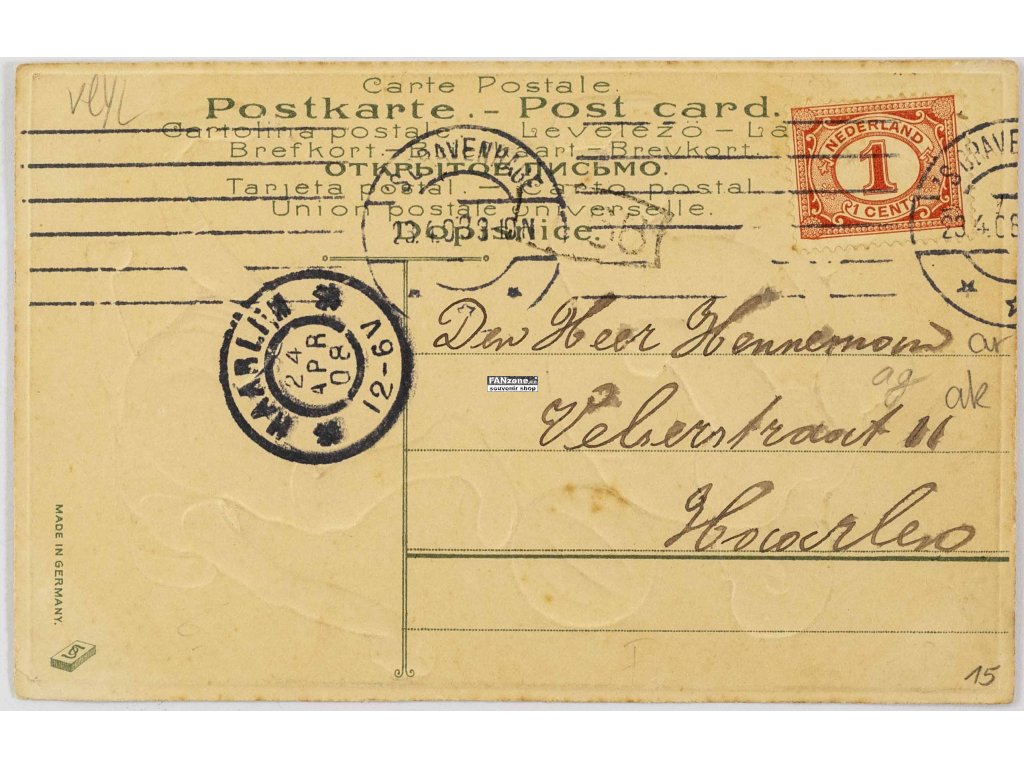 veyl
Carte Postale.
Postkarte. - Post card.
Cartolina postale - Levelező - La
Brefkort - Briefkaart - Brevkort.
ОТКРЫТОЕ ПИСЬМО.
Tarjeta postal. - Carto postal.
Union postale universelle.
Dopisnice.
NEDERLAND
1
1 CENT
'S GRAVENHAGE
23.4.08 9-10N
'S GRAVEN
23.4.08
HAARLEM
12-6V
24
APR
08
FANzone
souvenir shop
Den Heer Hennemann
ar
ag
ak
Velserstraat 11
Haarlem
MADE IN GERMANY.
15